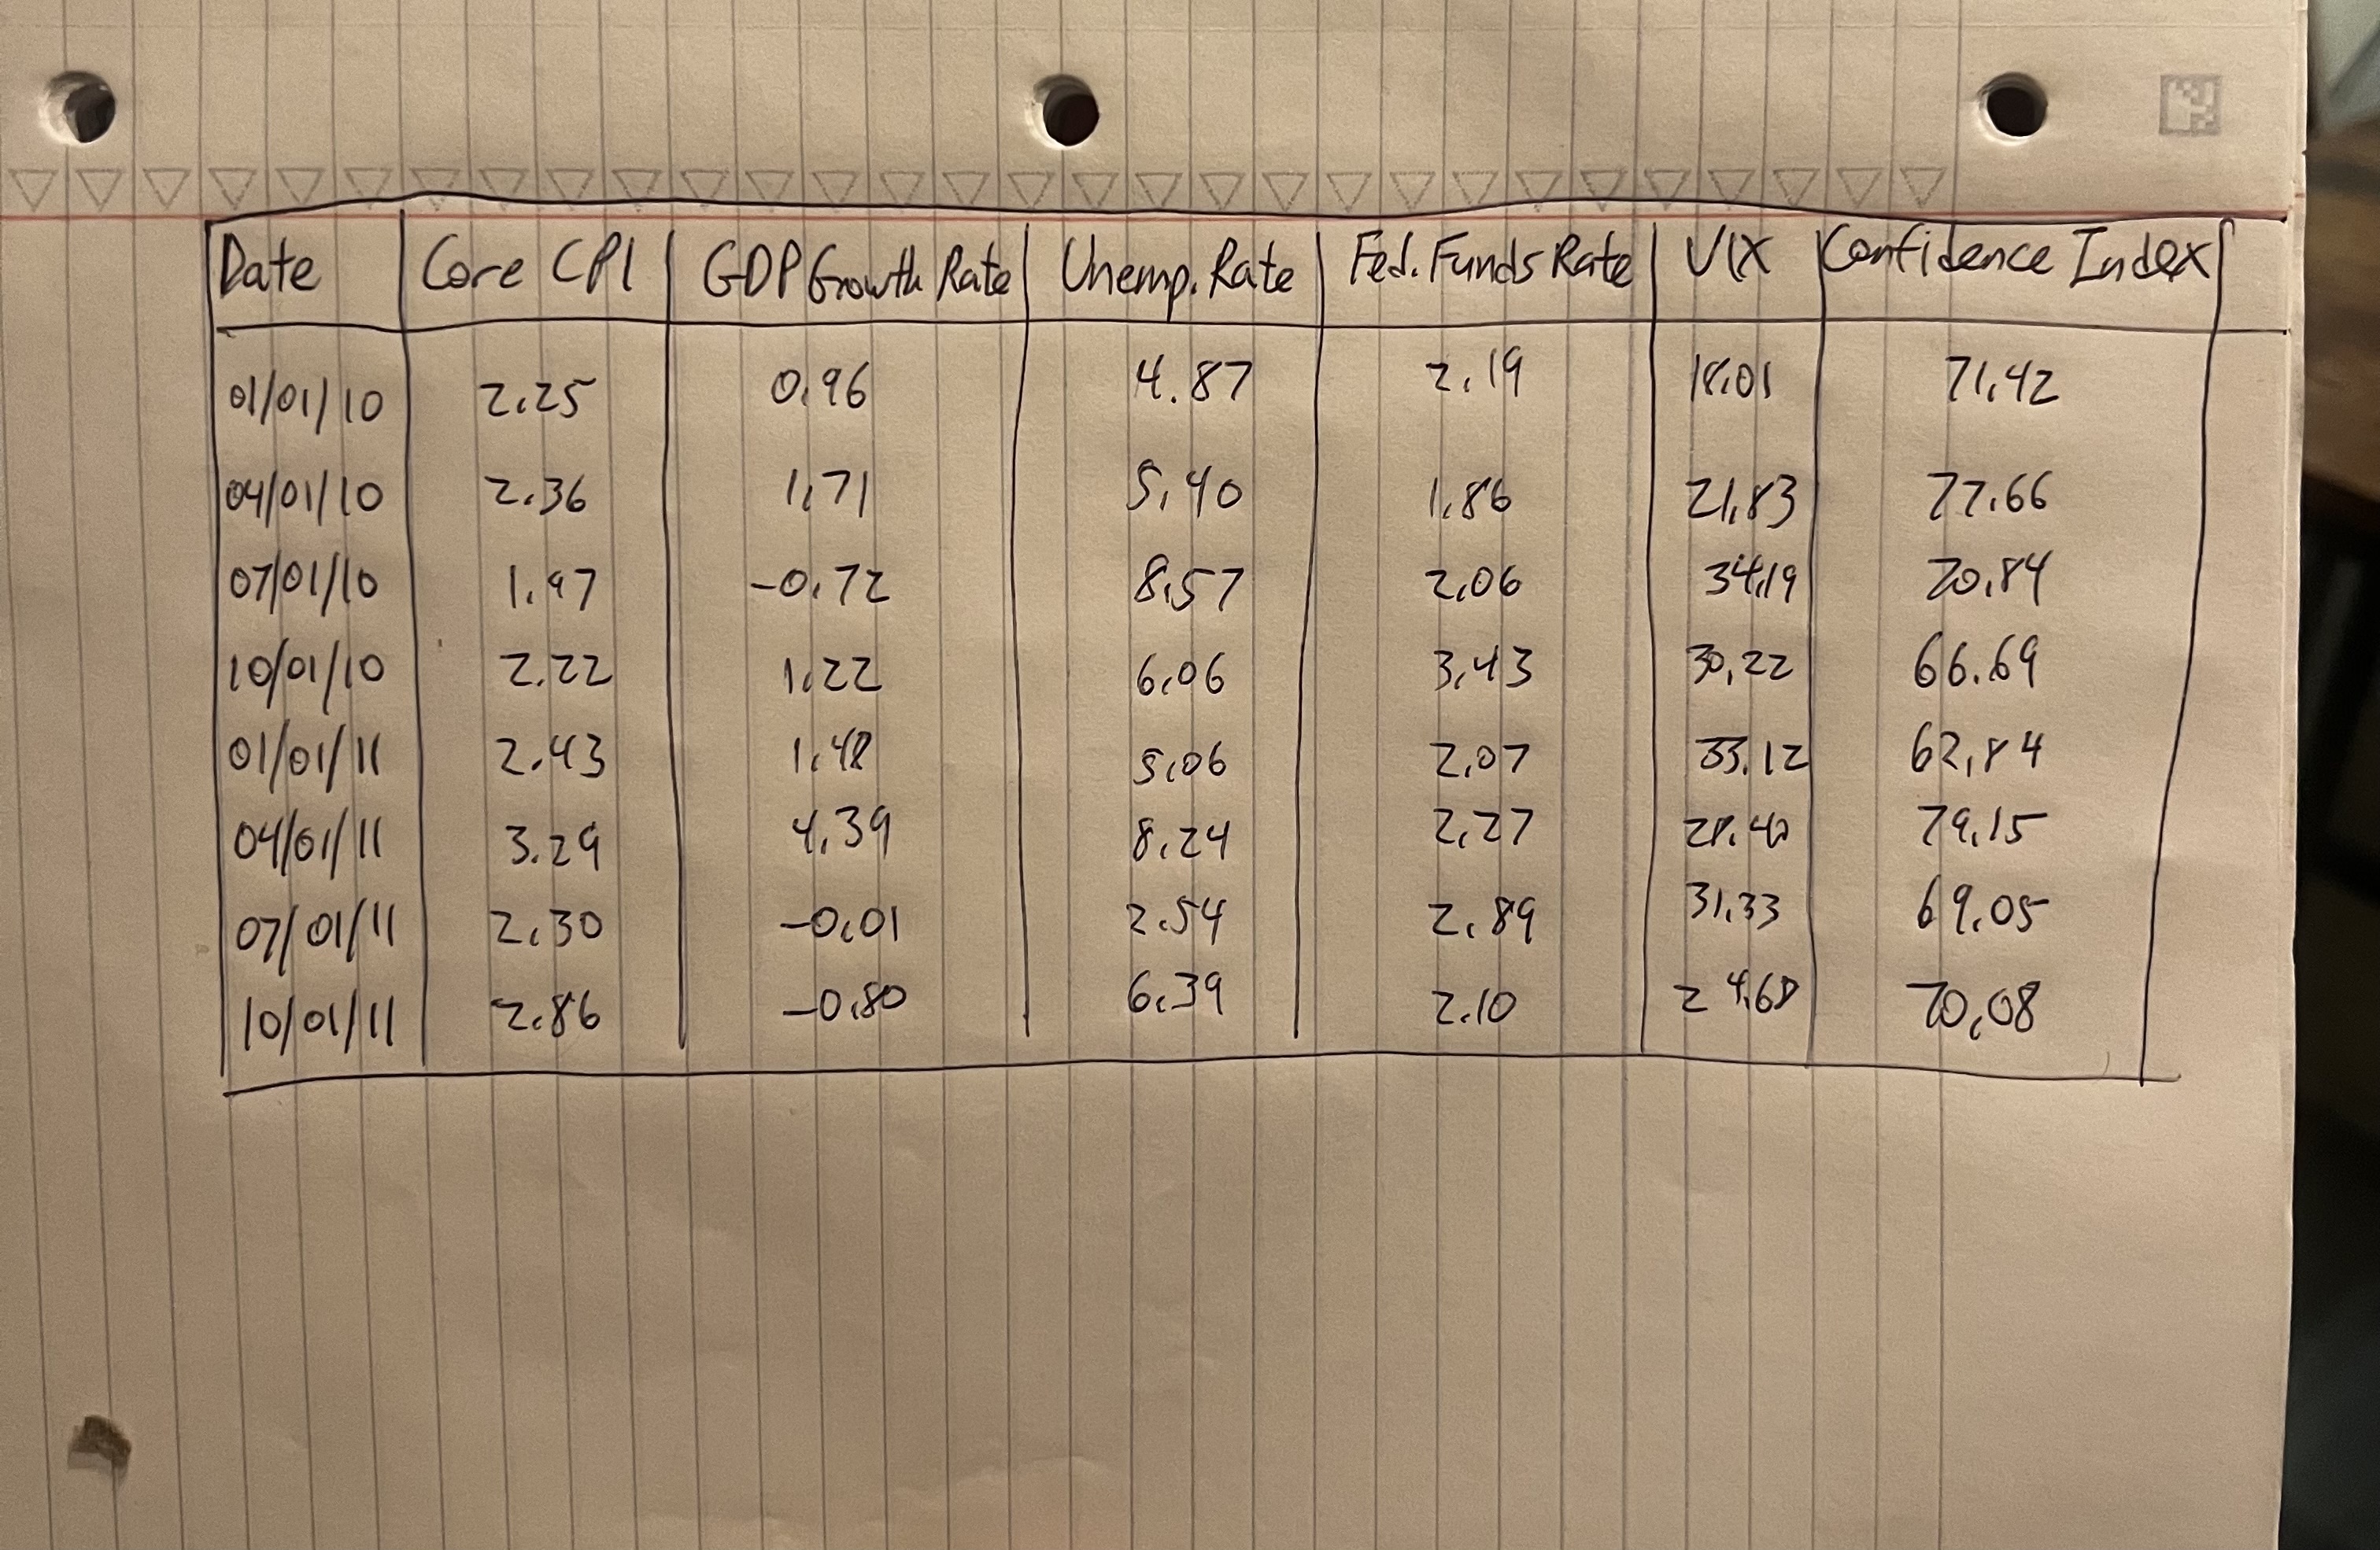 Date Core CPI GDP Growth Rate Unemp. Rate Fed. Funds Rate VIX Confidence Index
01/01/10 2.25 0.96 4.87 2.19 18.01 71.42
04/01/10 2.36 1.71 5.40 1.86 21.83 77.66
07/01/10 1.97 -0.72 8.57 2.06 34.19 70.84
10/01/10 2.22 1.22 6.06 3.43 30.22 66.69
01/01/11 2.43 1.48 5.06 2.07 33.12 62.84
04/01/11 3.29 4.39 8.24 2.27 79.15
07/01/11 2.30 -0.01 2.54 2.89 31.33 69.05
10/01/11 2.86 -0.80 6.39 2.10 24.68 70.08